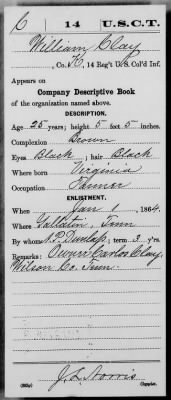 C 14 U.S.C.T.
William Clay
, Co. K, 14 Reg't U.S. Col'd Inf.
Appears on
Company Descriptive Book
of the organization named above.
DESCRIPTION.
Age 25 years; height 5 feet 5 inches.
Complexion Brown
Eyes Black; hair Black
Where born Virginia
Occupation Farmer
ENLISTMENT.
When Jan 1, 1864.
Where Gallatin, Tenn
By whom J.P. Dunlap; term 3 y'rs.
Remarks: Owner Carlos Clay,
Wilson Co. Tenn.
J. L. Norris
Copyist.